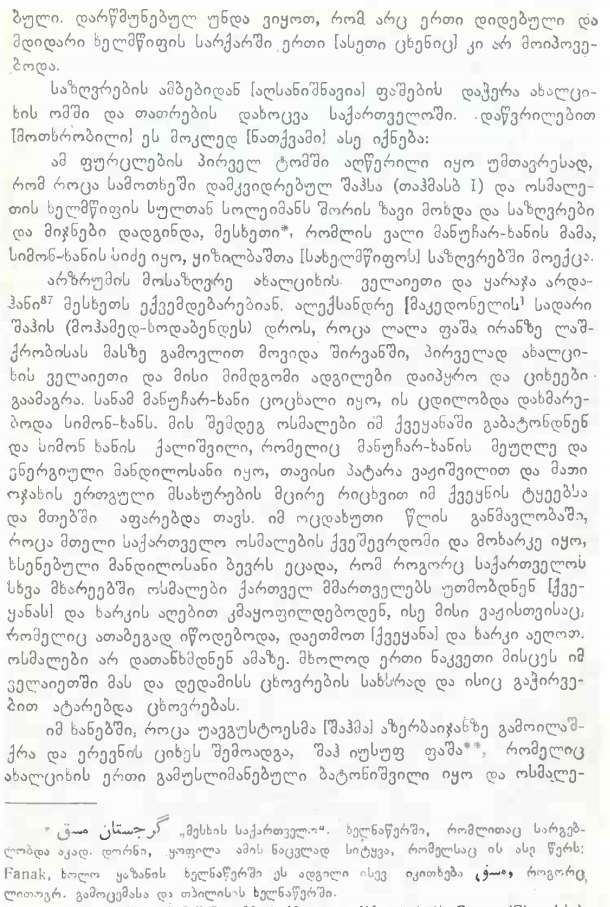 ბული. დარწმუნებულ უნდა ვიყოთ, რომ არც ერთი დიდებული და
მდიდარი ხელმწიფის სარქარში ერთი [ასეთი ცხენიც] კი არ მოიპოვე-
ბოდა.
საზღვრების ამბებიდან [აღსანიშნავია] ფაშების დაჭერა ახალცი-
ხის ომში და თათრების დახოცვა საქართველოში. დაწვრილებით
[მოთხრობილი] ეს მოკლედ [ნათქვამი] ასე იქნება:
ამ ფურცლების პირველ ტომში აღწერილი იყო უმთავრესად,
რომ როცა სამოთხეში დამკვიდრებულ შაჰსა (თაჰმასბ I) და ოსმალე-
თის ხელმწიფის სულთან სოლეიმანს შორის ზავი მოხდა და საზღვრები
და მიჯნები დადგინდა, მესხეთი*, რომლის ვალი მანუჩარ-ხანის მამა,
სიმონ-ხანის სიძე იყო, ყიზილბაშთა [სახელმწიფოს] საზღვრებში მოექცა.
არზრუმის მოსაზღვრე ახალციხის ველაიეთი და ყარაჯა არდა-
ჰანი⁸⁷ მესხეთს ექვემდებარებიან. ალექსანდრე [მაკედონელის] სადარი
შაჰის (მოჰამედ-ხოდაბენდეს) დროს, როცა ლალა ფაშა ირანზე ლაშ-
ქრობისას მასზე გამოვლით მოვიდა შირვანში, პირველად ახალცი-
ხის ველაიეთი და მისი მიმდგომი ადგილები დაიპყრო და ციხეები
გაამაგრა. სანამ მანუჩარ-ხანი ცოცხალი იყო, ის ცდილობდა დახმარე-
ბოდა სიმონ-ხანს. მის შემდეგ ოსმალები იმ ქვეყანაში გაბატონდნენ
და სიმონ ხანის ქალიშვილი, რომელიც მანუჩარ-ხანის მეუღლე და
ენერგიული მანდილოსანი იყო, თავისი პატარა ვაჟიშვილით და მათი
ოჯახის ერთგული მსახურების მცირე რიცხვით იმ ქვეყნის ტყეებსა
და მთებში აფარებდა თავს. იმ ოცდახუთი წლის განმავლობაში,
როცა მთელი საქართველო ოსმალების ქვეშევრდომი და მოხარკე იყო,
ხსენებული მანდილოსანი ბევრს ეცადა, რომ როგორც საქართველოს
სხვა მხარეებში ოსმალები ქართველ მმართველებს უთმობდნენ [ქვე-
ყანას] და ხარკის აღებით კმაყოფილდებოდენ, ისე მისი ვაჟისთვისაც,
რომელიც ათაბეგად იწოდებოდა, დაეთმოთ [ქვეყანა] და ხარკი აეღოთ.
ოსმალები არ დათანხმდნენ ამაზე. მხოლოდ ერთი ნაკვეთი მისცეს იმ
ველაიეთში მას და დედამისს ცხოვრების სახსრად და ისიც გაჭირვე-
ბით ატარებდა ცხოვრებას.
იმ ხანებში, როცა უავგუსტოესმა [შაჰმა] აზერბაიჯანზე გამოილაშ-
ქრა და ერევნის ციხეს შემოადგა, შაჰ იუსუფ ფაშა**, რომელიც
ახალციხის ერთი გამუსლიმანებული ბატონიშვილი იყო და ოსმალე-
* گرجستان مسق „მესხის საქართველო“. ხელნაწერში, რომლითაც სარგებ-
ლობდა აკად. დორნი, ყოფილა ამის ნაცვლად სიტყვა, რომელსაც ის ასე წერს:
Fanak, ხოლო ყაზანის ხელნაწერში ეს ადგილი ისევ იკითხება მسق, როგორც
ლითოგრ. გამოცემასა და თბილისის ხელნაწერში.